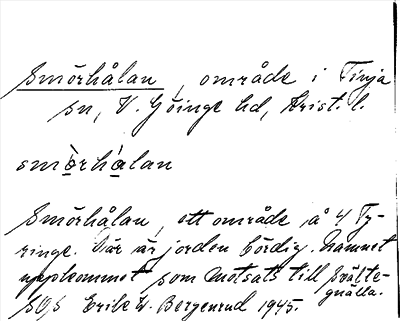 Smörhålan, område i Finja
sn, V. Göinge hd, Krist. l.
smörhålan
Smörhålan, ett område å 4 Ty-
ringe. Där är jorden bördig. Namnet
uppkommet som motsats till Svälte-
gnälla.
SOS Erik W. Bergenrud 1945.